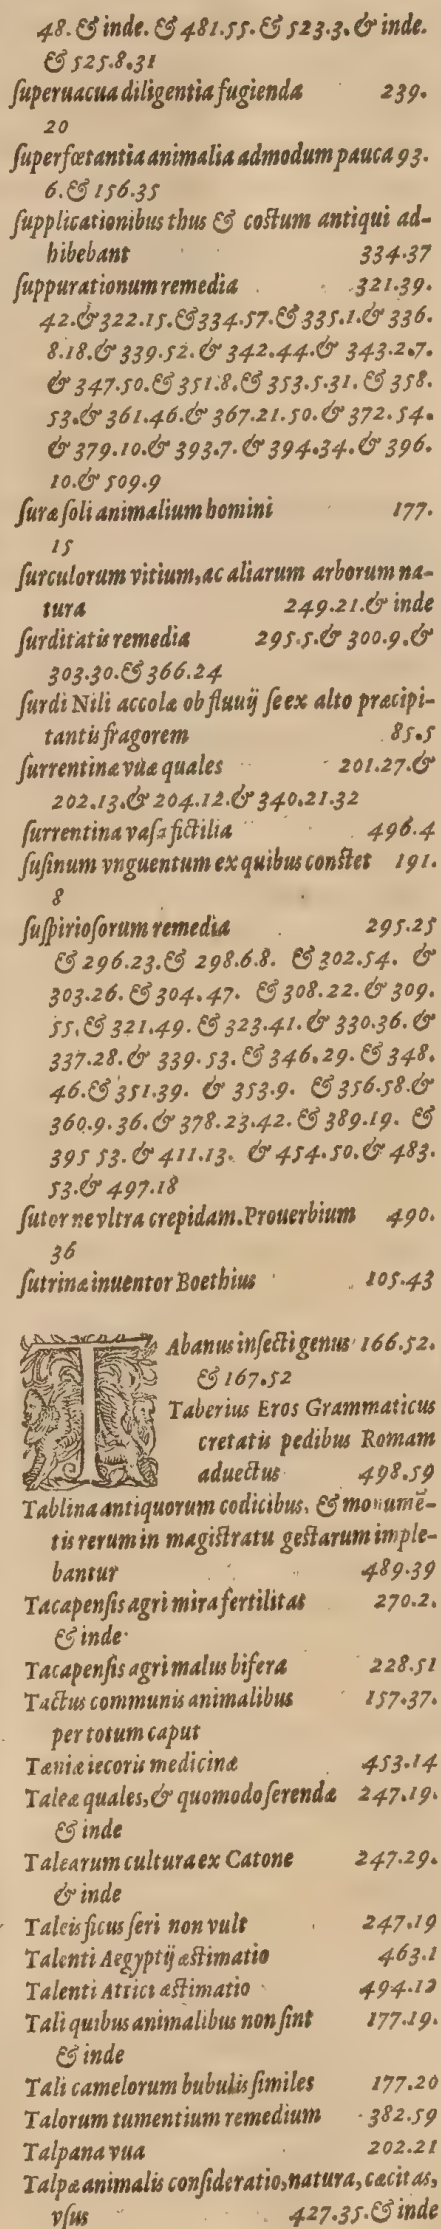 48. & inde. & 481.55. & 523.3. & inde.
& 525.8.31
ſuperuacua diligentia fugienda 239.
20
ſuperfœtantia animalia admodum pauca 93.
6. & 156.35
ſupplicationibus thus & coſtum antiqui ad-
hibebant 334.37
ſuppurationum remedia 321.39.
42. & 322.15. & 334.57. & 335.1. & 336.
8.18. & 339.52. & 342.44. & 343.2.7.
& 347.50. & 351.8. & 353.5.31. & 358.
53. & 361.46. & 367.21.50. & 372.54.
& 379.10. & 393.7. & 394.34. & 396.
10. & 509.9
ſuræ ſoli animalium homini 177.
15
ſurculorum vitium, ac aliarum arborum na-
tura 249.21. & inde
ſurditatis remedia 295.5. & 300.9. &
303.30. & 366.24
ſurdi Nili accolæ ob fluuij ſe ex alto præcipi-
tantis fragorem 85.5
ſurrentinæ vuæ quales 201.27. &
202.13. & 204.12. & 340.21.32
ſurrentina vaſa fictilia 496.4
ſuſinum vnguentum ex quibus conſtet 191.
8
ſuſpirioſorum remedia 295.25
& 296.23. & 298.6.8. & 302.54. &
303.26. & 304.47. & 308.22. & 309.
55. & 321.49. & 323.41. & 330.36. &
337.28. & 339.53. & 346.29. & 348.
46. & 351.39. & 353.9. & 356.58. &
360.9.36. & 378.23.42. & 389.19. &
395 53. & 411.13. & 454.50. & 483.
53. & 497.18
ſutor ne vltra crepidam. Prouerbium 490.
36
ſutrinæ inuentor Boethius 105.43
TAbanus inſecti genus 166.52.
& 167.52
Taberius Eros Grammaticus
cretatis pedibus Romam
aduectus 498.59
Tablina antiquorum codicibus, & monumē-
tis rerum in magiſtratu geſtarum imple-
bantur 489.39
Tacapenſis agri mira fertilitas 270.2.
& inde
Tacapenſis agri malus bifera 228.51
Tactus communis animalibus 157.37.
per totum caput
Tæniæ iecoris medicinæ 453.14
Taleæ quales, & quomodo ſerendæ 247.19.
& inde
Talearum cultura ex Catone 247.29.
& inde
Taleis ficus ſeri non vult 247.19
Talenti Aegyptij æſtimatio 463.1
Talenti Attici æſtimatio 494.12
Tali quibus animalibus non ſint 177.19.
& inde
Tali camelorum bubulis ſimiles 177.20
Talorum tumentium remedium 382.59
Talpana vua 202.21
Talpæ animalis conſideratio, natura, cæcitas,
vſus 427.35. & inde